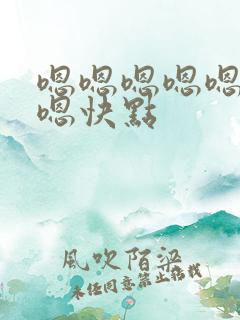 嗯嗯嗯嗯嗯
嗯快點
風吹陌梁
未經同意禁止轉載